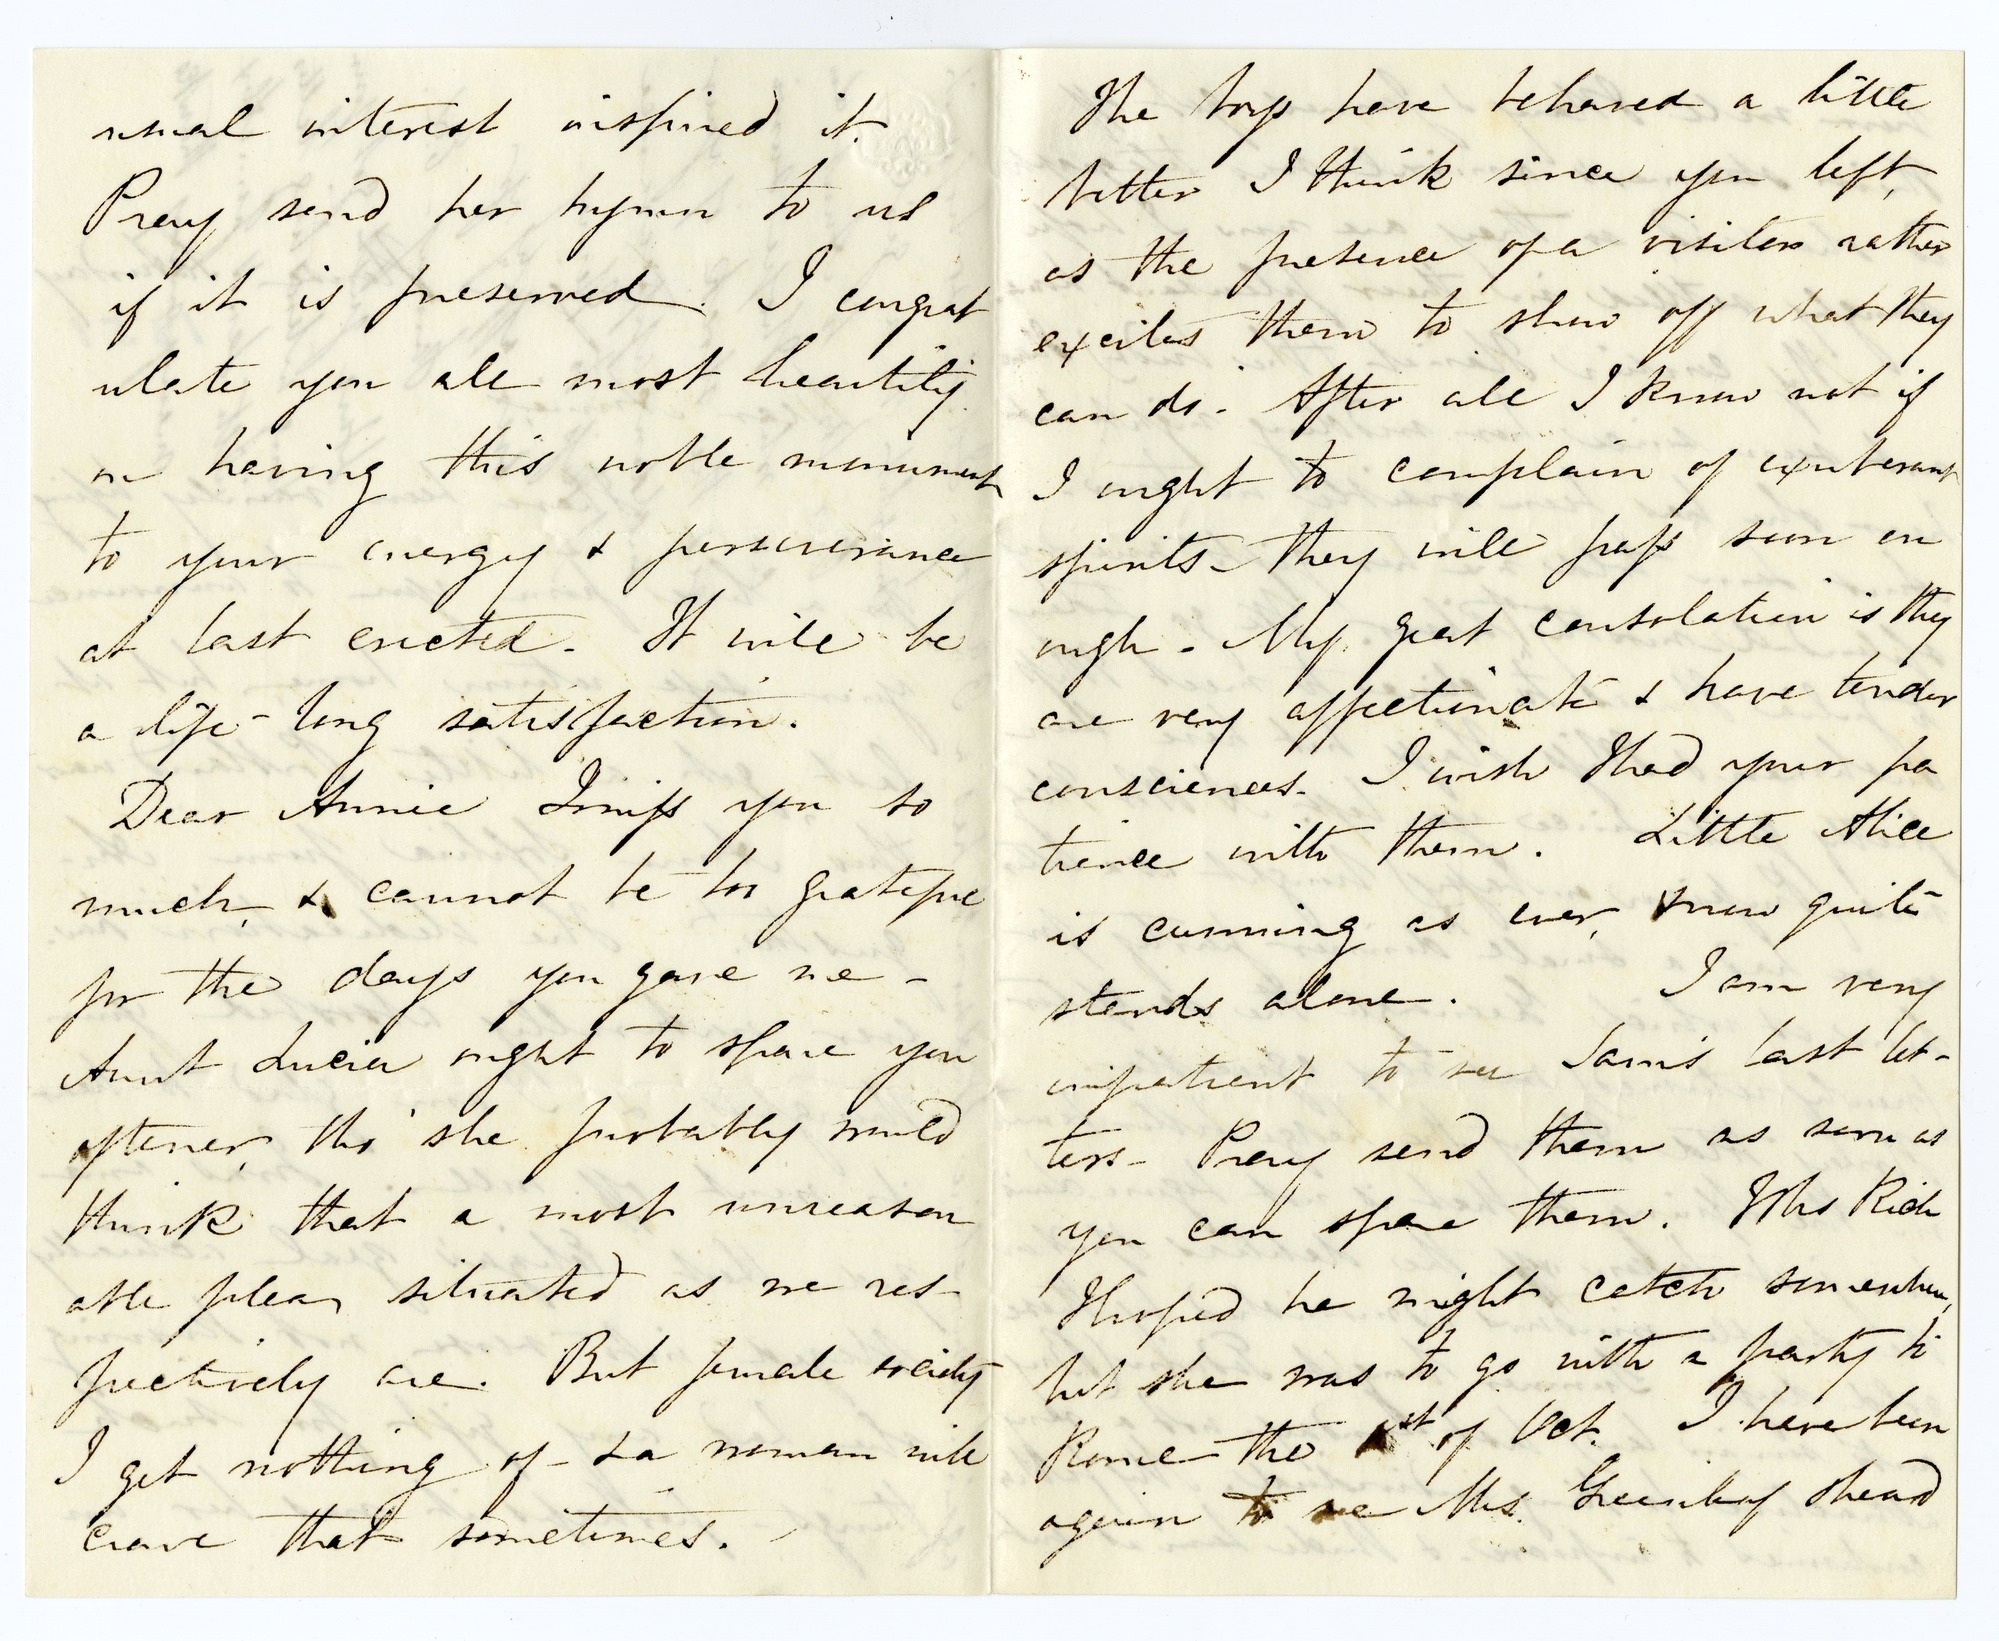 usual interest inspired it.
Pray send her hymn to us
if it is preserved. I congrat
ulate you all most heartily
on having this noble monument
to your energy & perseverance
at last erected. It will be
a life-long satisfaction.
Dear Annie I miss you so
much, & cannot be too grateful
for the days you gave me -
Aunt Lucia ought to spare you
oftener, tho' she probably would
think that a most unreason
able plea, situated as we res-
pectively are. But female society
I get nothing of - & a woman will
crave that sometimes. -
The boys have behaved a little
better I think since you left,
as the presence of a visitor rather
excites them to show off what they
can do. After all I know not if
I ought to complain of exuberant
spirits - they will pass soon en
ough - My great consolation is they
are very affectionate & have tender
consciences. I wish I had your pa
tience with them. Little Alice
is cunning as ever, & now quite
stands alone. I am very
impatient to see Sam's last let-
ters - Pray send them as soon as
you can spare them. Mrs Rich
I hoped he might catch somewhere,
but she was to go with a party to
Rome the 1st of Oct. I have been
again to see Mrs. Greenleaf & head